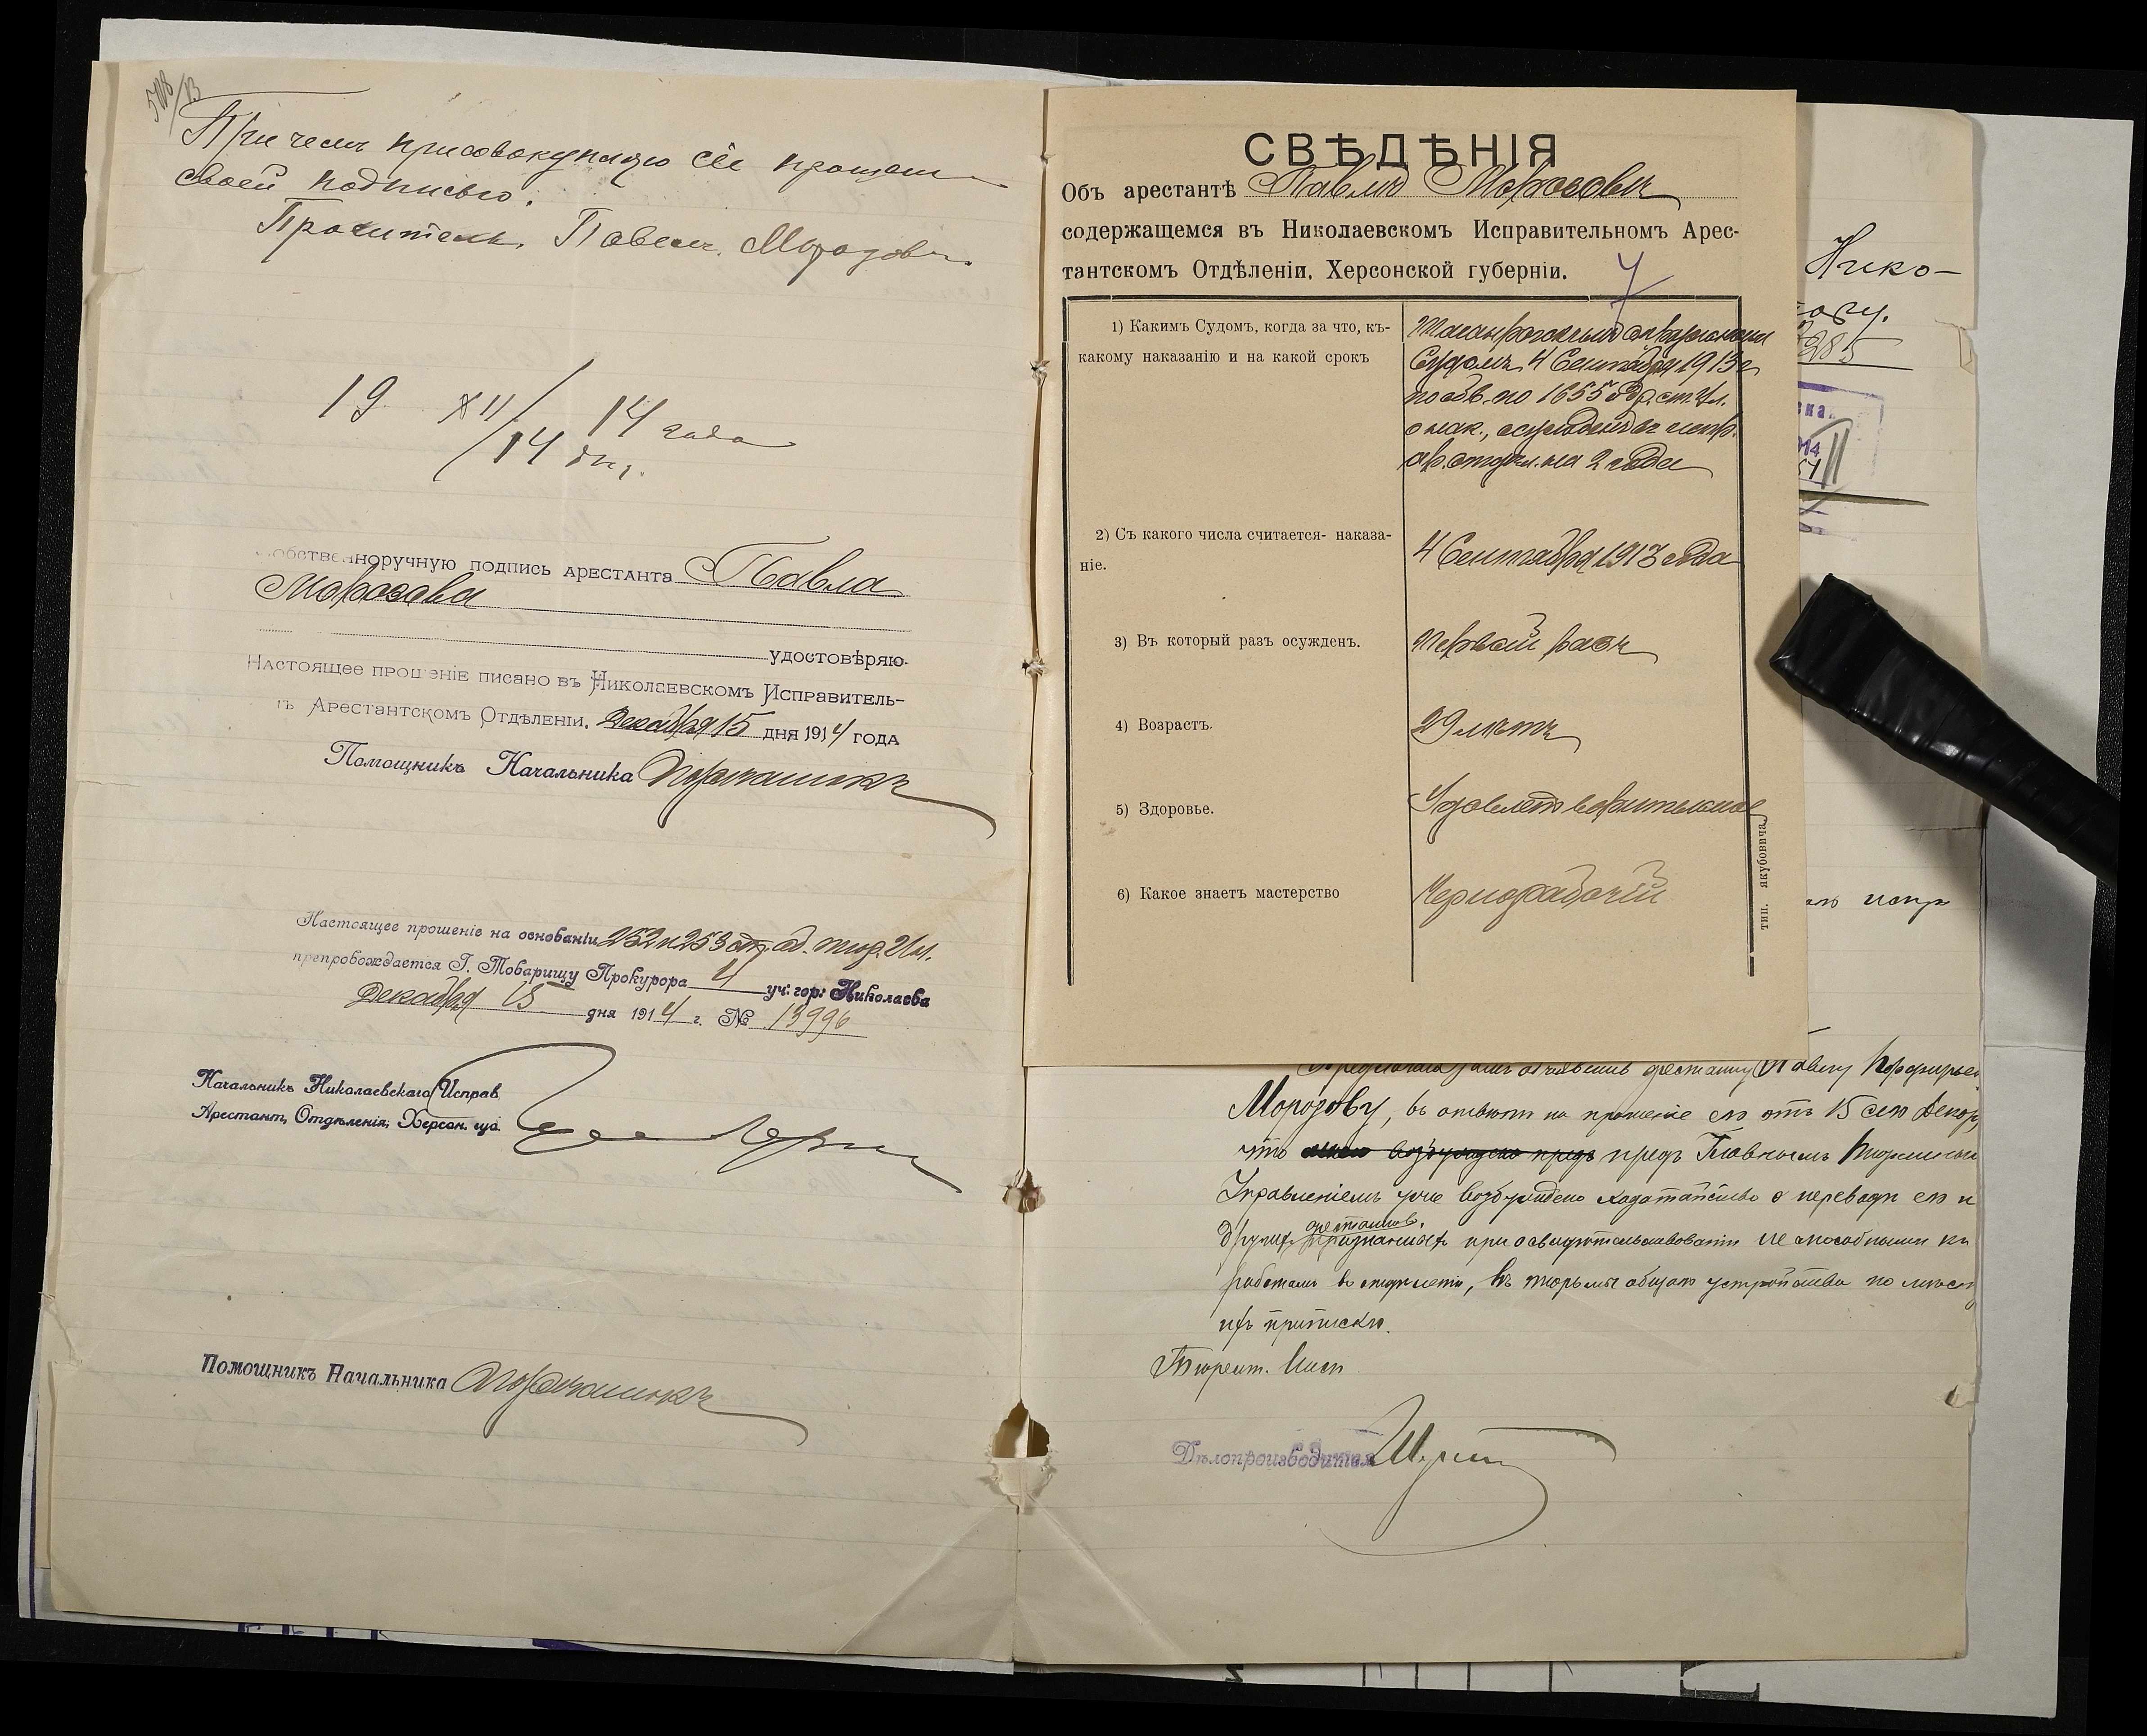 508/13
При чемъ присовокупляю сіе прошен
своей подписью.
Проситель. Павелъ. Морозовъ.
19 XII/14 14 года
дня.
Собственноручную подпись арестанта Павла
Морозова
удостовѣряю.
Настоящее прошеніе писано въ Николаевскомъ Исправитель-
ъ Арестантскомъ Отдѣленіи. Декабря 15 дня 1914 года
Помощникъ Начальника
Настоящее прошеніе на основаніи 252 и 253 ст. об. тюр. Ин.
препровождается Г. Товарищу Прокурора 4 уч: гор: Николаева
Декабря 15 дня 1914 г. № 13996
Начальникъ Николаевскаго Исправ.
Арестант, Отдѣленія, Херсон. губ.
Помощникъ Начальника
СВѢДѢНІЯ
Объ арестантѣ Павлѣ Морозовѣ
содержащемся въ Николаевскомъ Исправительномъ Арес-
тантскомъ Отдѣленіи, Херсонской губерніи.
7
1) Какимъ Судомъ, когда за что, къ-
какому наказанію и на какой срокъ
Таганрогскимъ Окружнымъ
Судомъ 4 Сентября 1913 г.
по обв. по 1655 ст. Ул.
о нак., осужденъ въ испр.
ар. отдѣл. на 2 года
2) Съ какого числа считается- наказа-
ніе.
4 Сентября 1913 года
3) Въ который разъ осужденъ.
Первый разъ
4) Возрастъ.
29 лѣтъ
5) Здоровье.
Удовлетворительное
6) Какое знаетъ мастерство
Чернорабочій
тип. якубовича
Нико-
285
испр
объявить арестанту Павлу Порфирьев.
Морозову, въ отвѣтъ на прошеніе его отъ 15 сего Декабр,
что возбуждено предъ предъ Главнымъ Тюремнымъ
Управленіемъ уже возбуждено ходатайство о переводѣ его и
арестантовъ,
другихъ признанныхъ при освидѣтельствованіи неспособными къ
работамъ въ отдѣленіи, въ тюрьмы общаго устройства по мѣсту
ихъ приписки.
Тюремн. Инсп
Дѣлопроизводитель